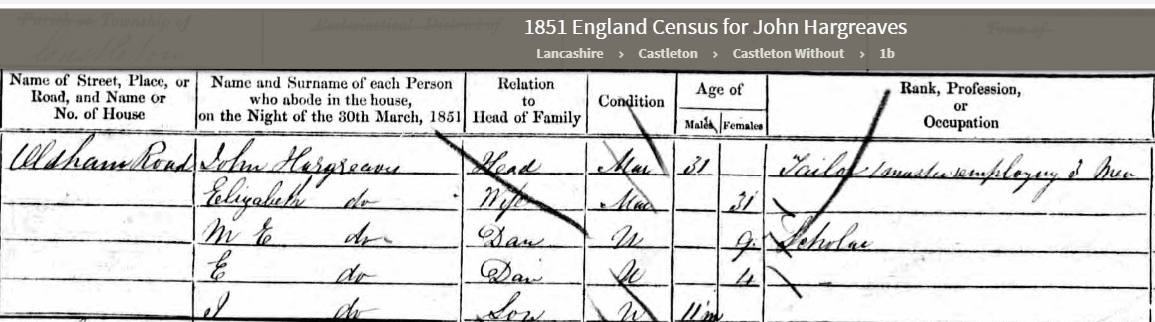 Parish or Township of
Ecclesiastical District of
Town of
Castleton
1851 England Census for John Hargreaves
Lancashire › Castleton › Castleton Without › 1b
Name of Street, Place, or Road, and Name or No. of House
Name and Surname of each Person who abode in the house, on the Night of the 30th March, 1851
Relation to Head of Family
Condition
Age of
Males Females
Rank, Profession, or Occupation
Oldham Road John Hargreaves Head Mar 31 Tailor master employing 3 Men
Elizabeth do Wife Mar 31
M E do Dau U 9 Scholar
E do Dau U 4
J do Son U 11 m